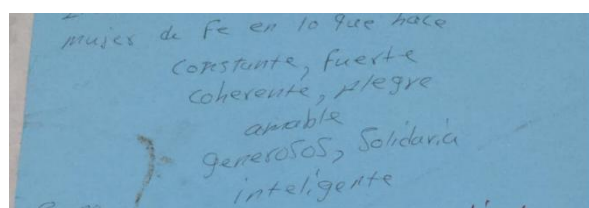 mujer de fe en lo que hace
constante, fuerte
coherente, alegre
amable
generosos, solidaria
inteligente